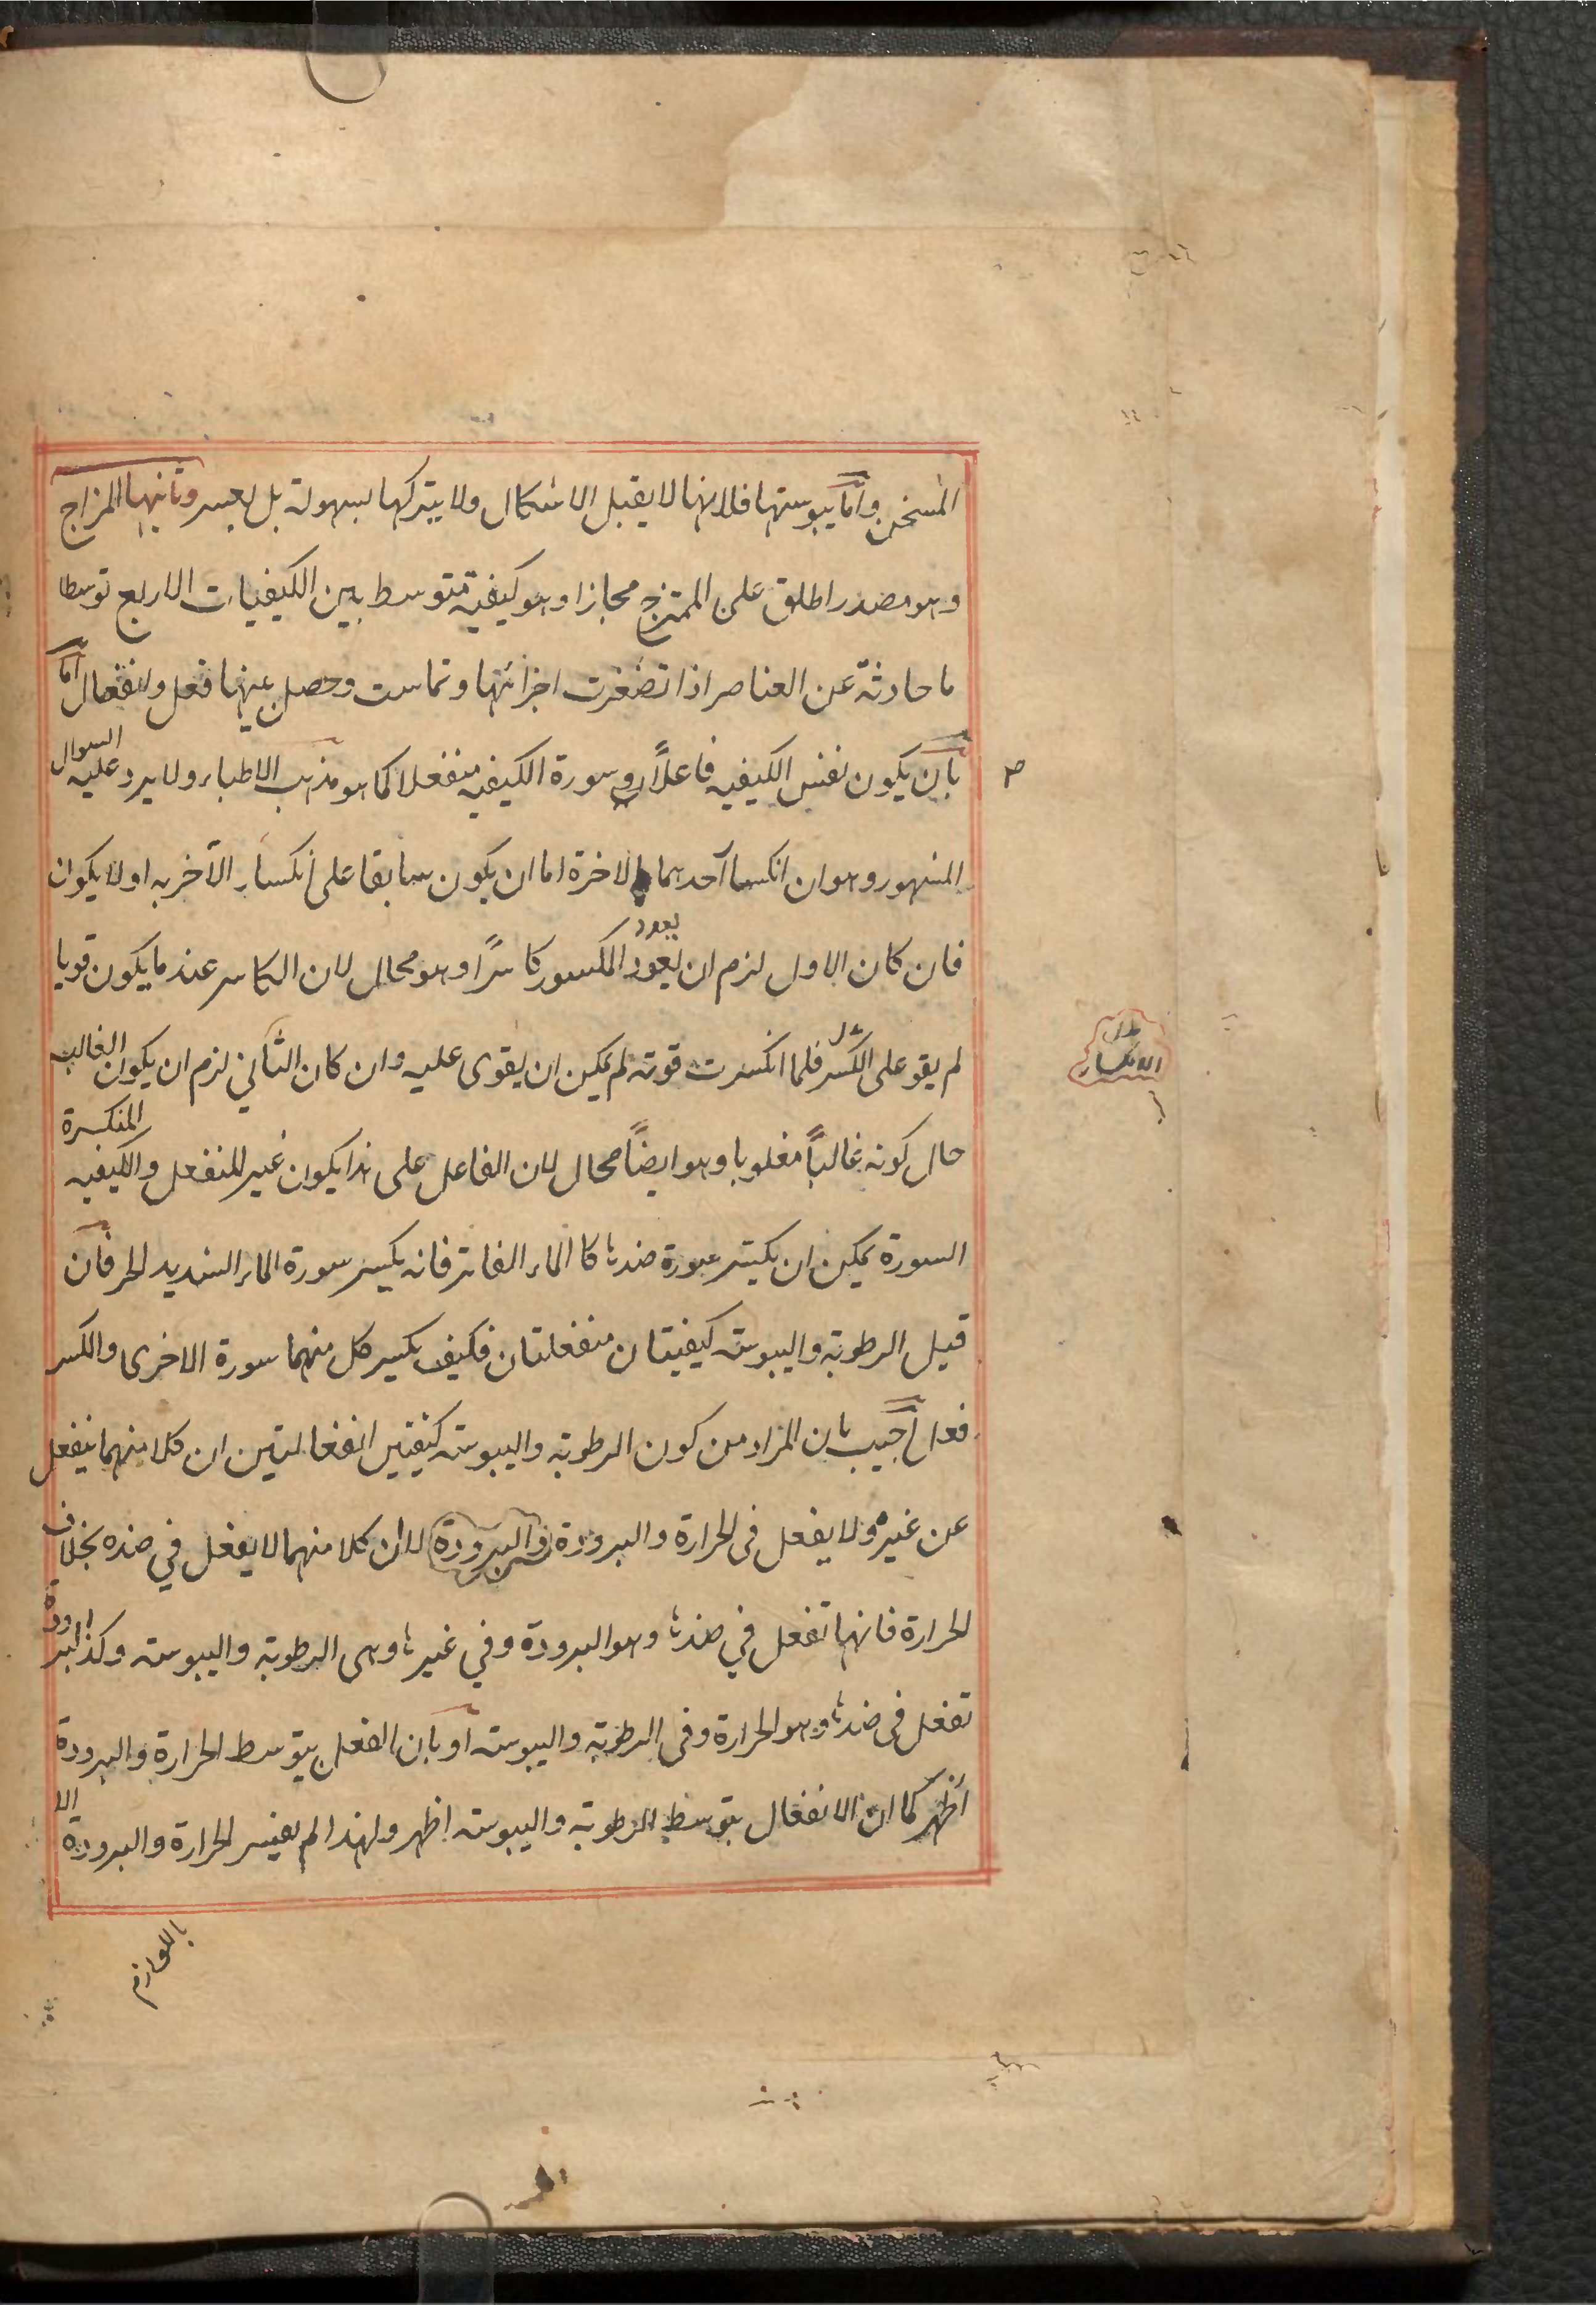 المسخن واما يبوستها فلانها لا يقبل الاشكال ولا يتركها بسهولة بل بعسر وثانيها المزاج
وهو مصدر اطلق على الممتزج مجازا وهو كيفية متوسط بين الكيفيات الاربع توسطا
ما حادثة عن العناصر اذا تصغرت اجزائها وتماست وحصل بينها فعل وانفعال اما
بان يكون نفس الكيفيه فاعلاً وسورة الكيفيه منفعلا كما هو مذهب الاطباء ولا يرد عليه السوال
المشهور وهو ان انكسا احدهما بالاخرة اما ان يكون سابقا على انكسار الآخر به او لا يكون
فان كان الاول لزم ان يعود المكسور كاسرًا وهو محال لان الكاسر عند ما يكون قويا
يعود
لم يقو على الكسر فلما انكسرت قوته لم يمكن ان يقوى عليه وان كان الثاني لزم ان يكون الغالب
بدل
الانكسار
حال كونه غالباً مغلوبا وهو ايضاً محال لان الفاعل على هذا يكون غير المنفعل والكيفيه المنكسرة
السورة يمكن ان يكسر سورة ضدها كالماء الفاتر فانه يكسر سورة الماء الشديد الحر فان
قيل الرطوبة واليبوسة كيفيتان منفعلتان فكيف يكسر كل منهما سورة الاخرى والكسر
فعل اجيب بان المراد من كون الرطوبة واليبوسة كيفيتين انفعاليتين ان كلا منهما ينفعل
عن غيره ولا يفعل فى الحرارة والبرودة والبرودة لا ان كلا منهما لا يفعل في ضده بخلاف
الحرارة فانها تفعل في ضدها وهو البرودة وفي غيرها وهى الرطوبة واليبوسة وكذا البرودة
تفعل فى ضدها وهو الحرارة وفى الرطوبة واليبوسة او بان الفعل بتوسط الحرارة والبرودة
أظهر كما ان الانفعال بتوسط الرطوبة واليبوسة اظهر ولهذا لم يفسر الحرارة والبرودة الا
باللوازم